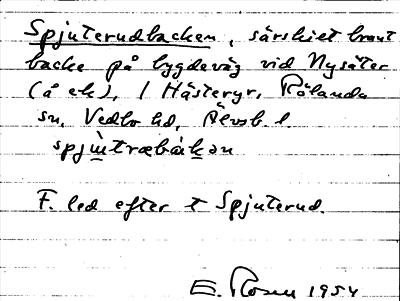 Spjuterudbacken, särskiet brant
backe på bygdeväg vid Nysäter
(å ek), 1 Hästeryr, Rölanda
sn, Vedbo hd, Älvsb. l.
spju̱̇træbàḵən
F. led efter t Spjuterud.
E. Rosen 1954